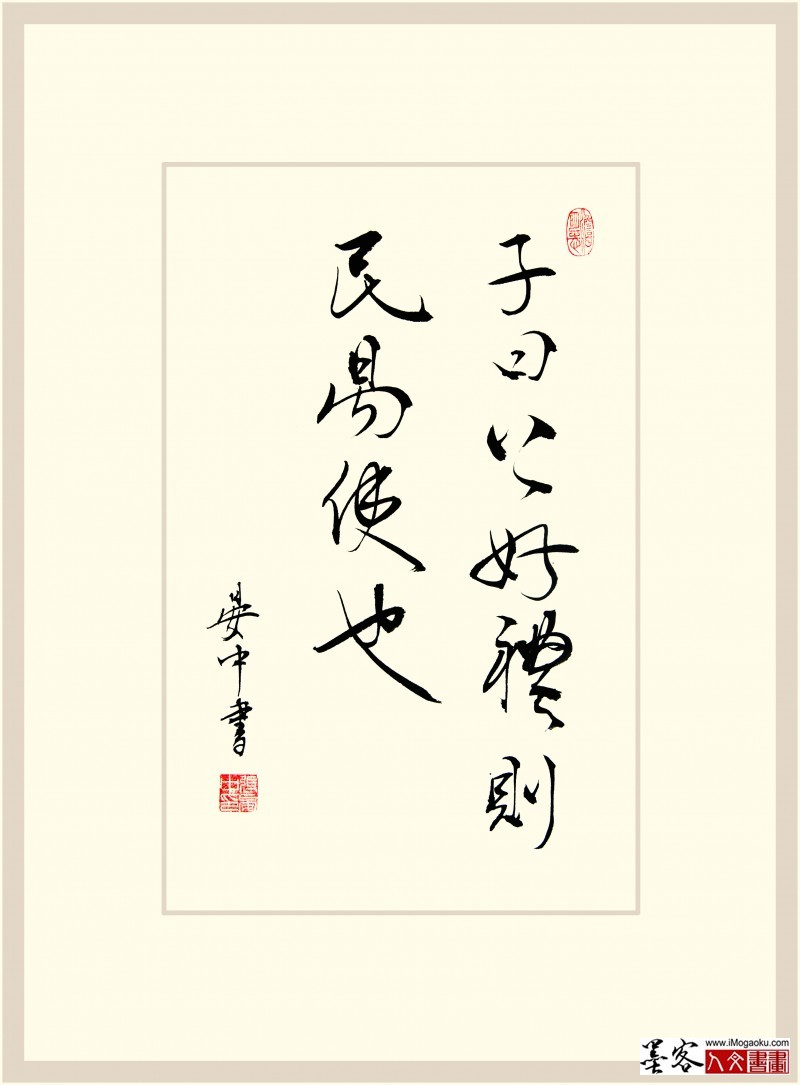 子曰公好禮則
民易使也
晏中書
墨客
www.iMogaoku.com
人文書畫